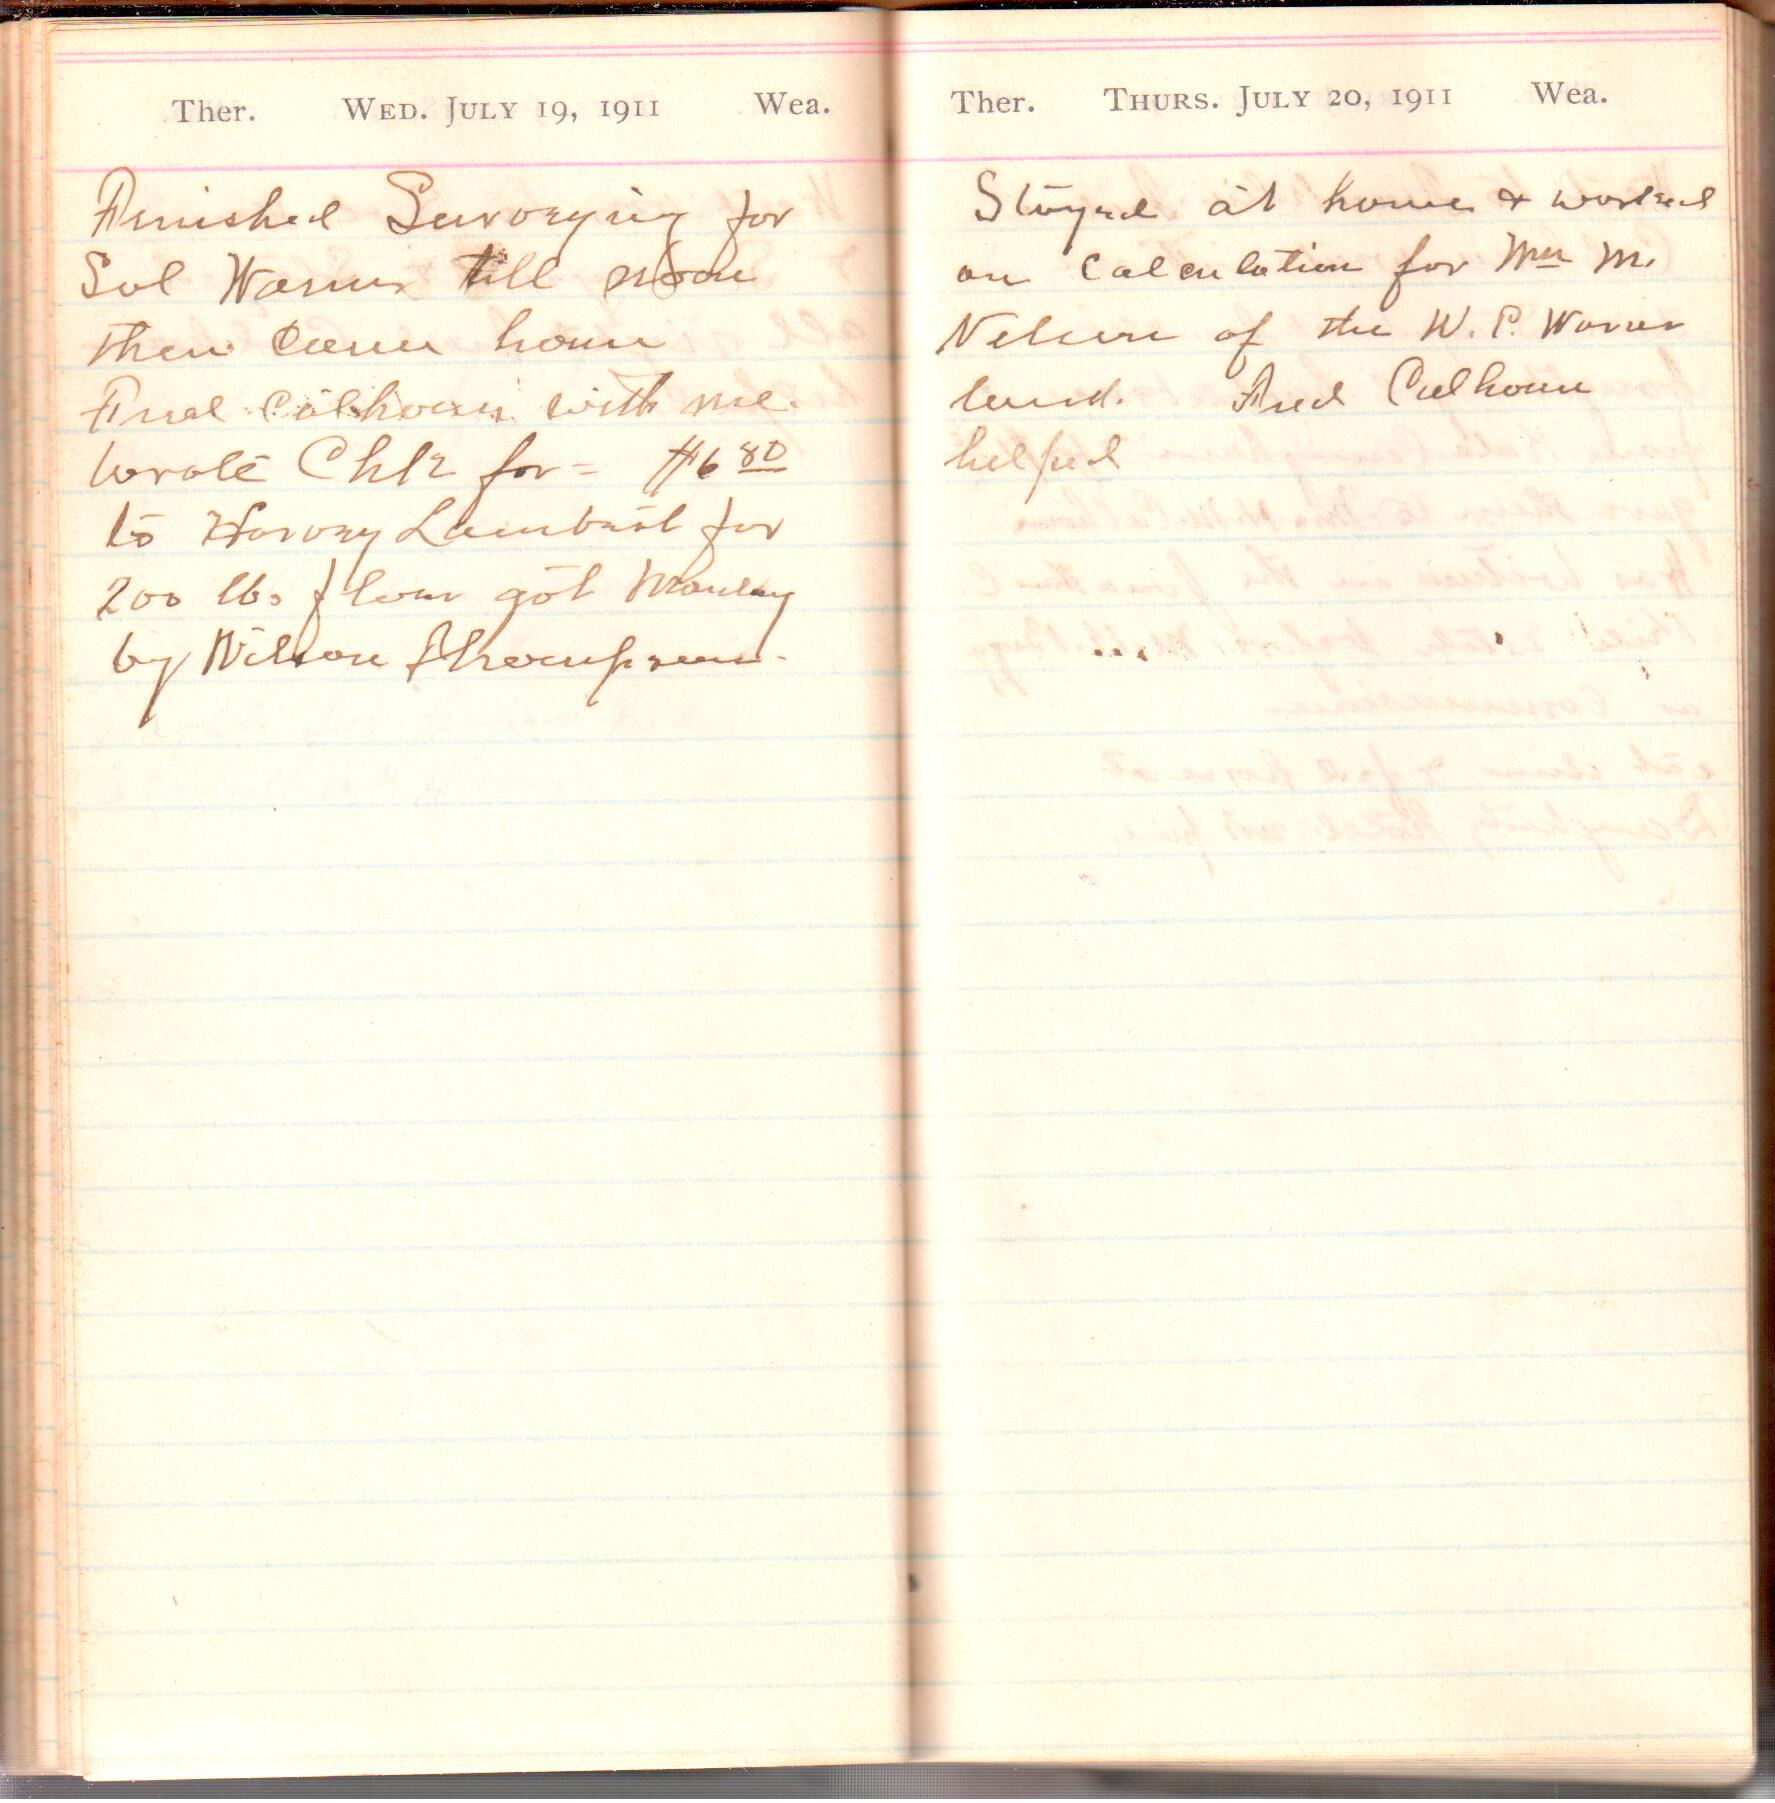 Ther. WED. JULY 19, 1911 Wea.
Finished Surveying for
Sol Warner till noon
then came home
Fred Calhoun with me.
wrote Chk for = $6 80
to Harvey Lambert for
200 lbs flour got Monday
by Wilson Thompson.
Ther. THURS. JULY 20, 1911 Wea.
Stayed at home & worked
on Calculation for Mrs M.
Nelson of the W. P. Warner
land. Fred Calhoun
helped